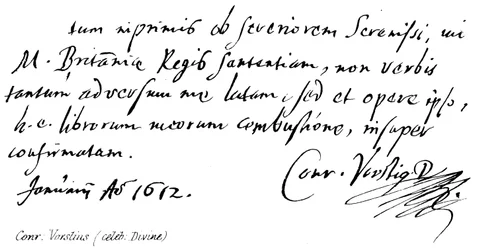 tum inprimis ob severiorem Serenissi, mi
M. Britaniæ Regis sententiam, non verbis
tantum adversum me latam, sed et opere ipso,
h.e. librorum meorum combustione, insuper
confirmatam.
Conr. Vorstius D.
Januarii Aº 1612.
Conr. Vorstius (celeb: Divine)